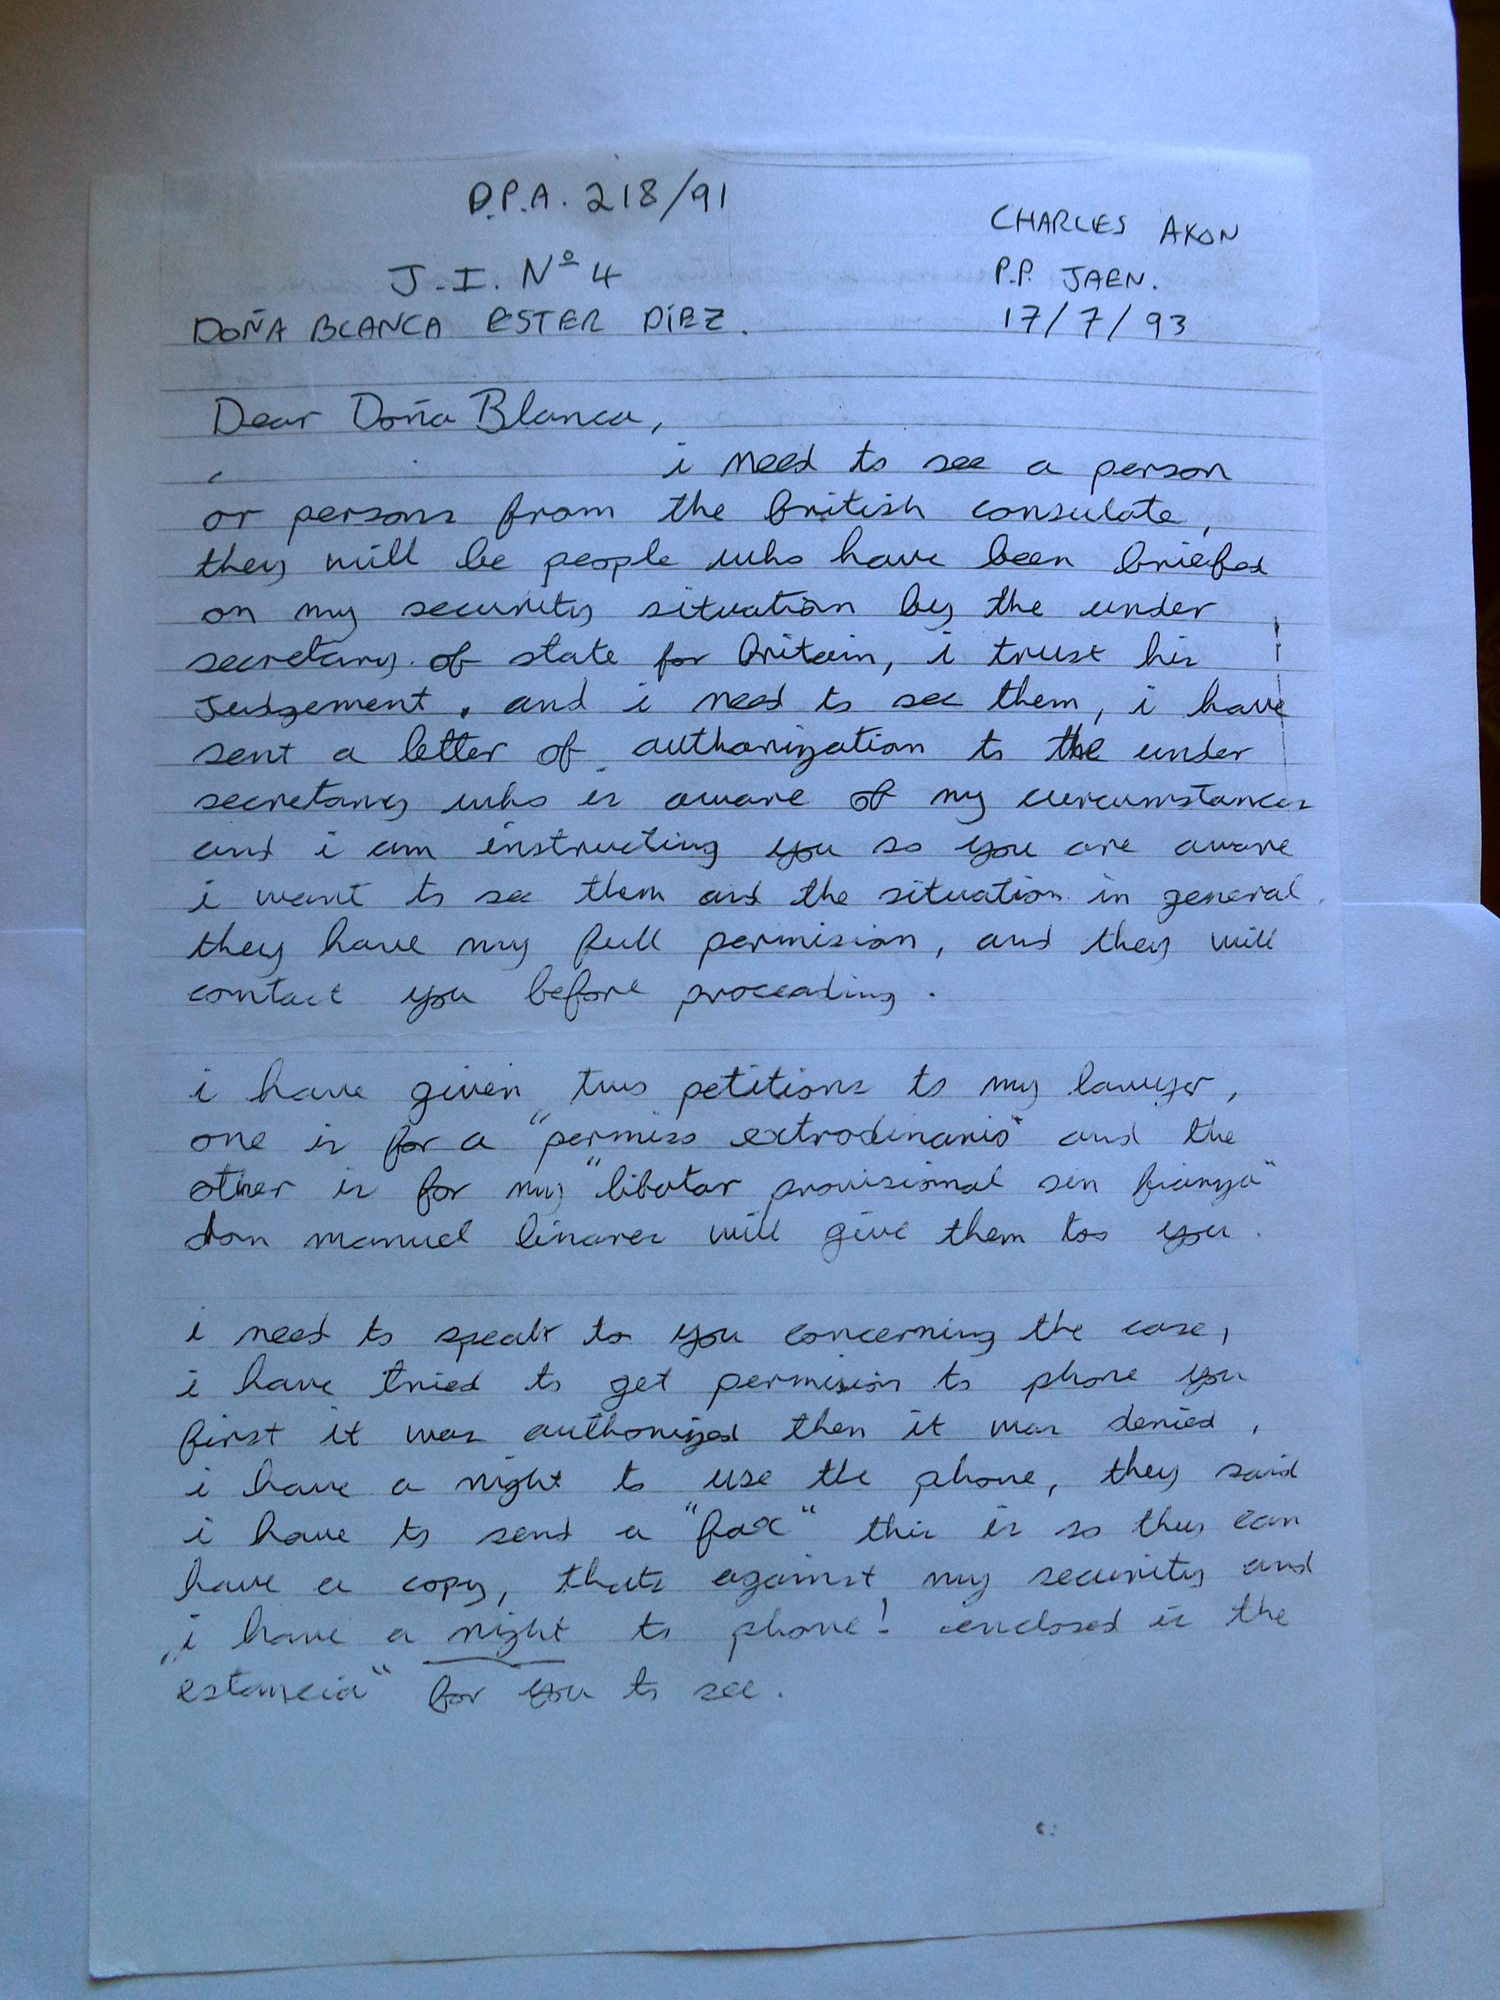 D.P.A. 218/91
CHARLES AKON
J.I. Nº 4
P.P. JAEN.
DOÑA BLANCA ESTER DÍEZ.
17/7/93
Dear Doña Blanca,
i need to see a person
or persons from the british consulate,
they will be people who have been briefed
on my security situation by the under
secretary of state for britain, i trust his
Judgement, and i need to see them, i have
sent a letter of authorization to the under
secretary who is aware of my circumstances
and i am instructing you so you are aware
i want to see them and the situation in general.
they have my full permision, and they will
contact you before proceading.
i have given two petitions to my lawyer,
one is for a "permiso extrodinario" and the
other is for my "libatar provisional sin fianza"
don manuel linares will give them too you.
i need to speak to you concerning the case,
i have tried to get permision to phone you
first it was authorized then it was denied,
i have a right to use the phone, they said
i have to send a "fax" this is so they can
have a copy, thats against my security and
i have a right to phone! enclosed is the
"estancia" for you to see.